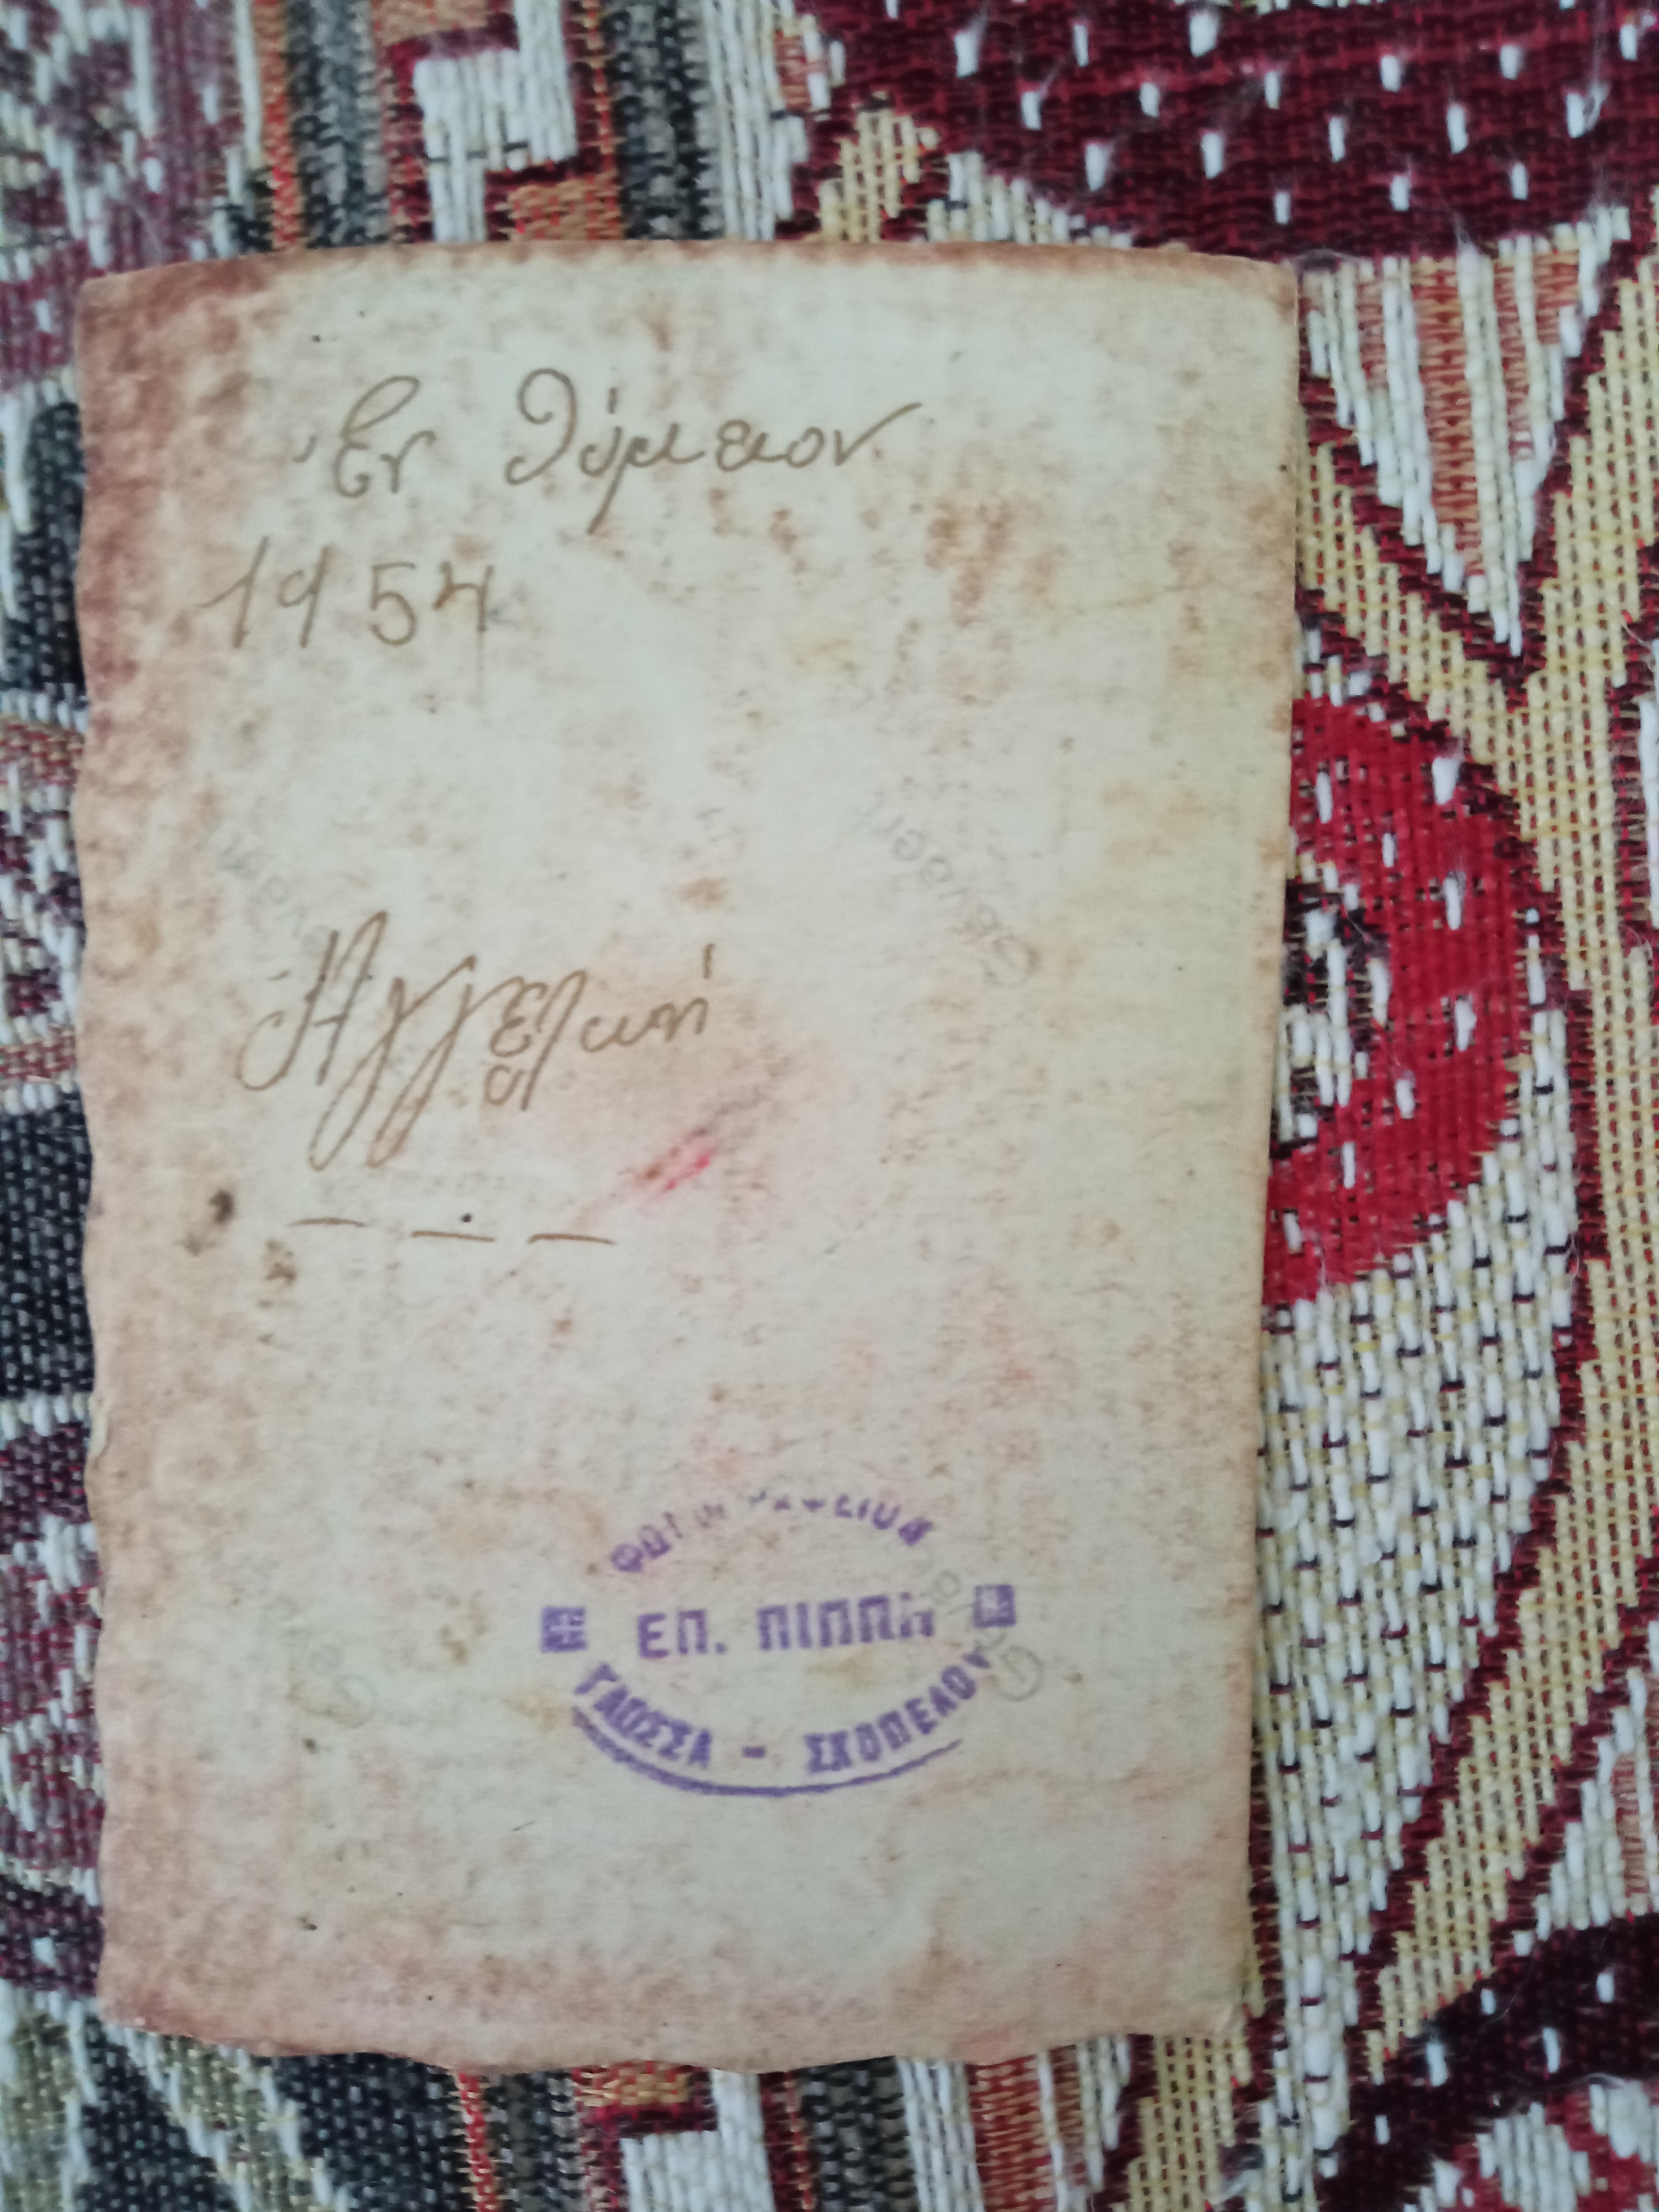 Ἐν θύμειον
1954
Gevaert
Ἀγγελική
ΦΩΤΟΓΡΑΦΕΙΟΝ
ΕΠ. ΠΙΠΠΗ
ΓΛΩΣΣΑ - ΣΚΟΠΕΛΟΥ